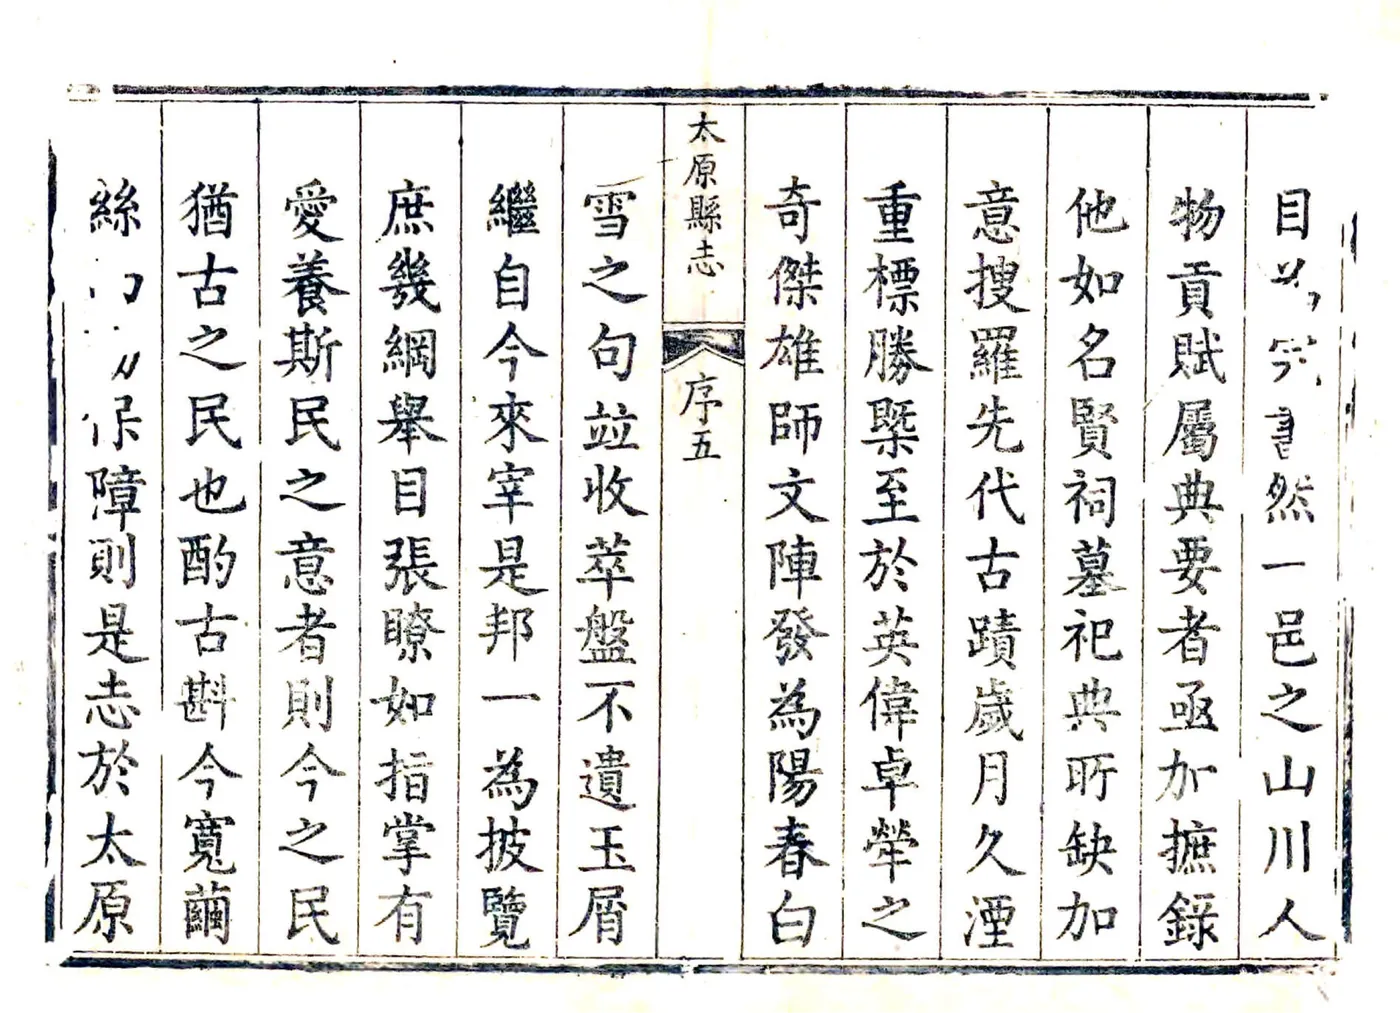 目 書然一邑之山川人
物貢賦屬典要者亟加摭錄
他如名賢祠墓祀典所缺加
意搜羅先代古蹟歲月久湮
重標勝槩至於英偉卓犖之
奇傑雄師文陣發為陽春白
太原縣志
序五
雪之句竝收萃盤不遺玉屑
繼自今來宰是邦一為披覽
庶幾綱舉目張瞭如指掌有
愛養斯民之意者則今之民
猶古之民也酌古斟今寬繭
絲 保障則是志於太原